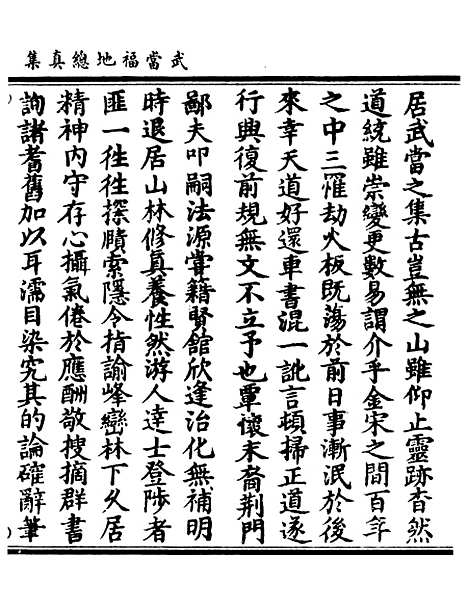 武當福地總真集
居武當之集古豈無之山雖仰止靈跡杳然
道統雖崇變更數易謂介乎金宋之間百年
之中三罹劫火板既蕩於前日事漸泯於後
來幸天道好還車書混一訛言頓掃正道遂
行興復前規無文不立予也覃懷末裔荆門
鄙夫叩嗣法源嘗籍賢館欣逢治化無補明
時退居山林修真養性然游人達士登陟者
匪一徃徃探賾索隱令指諭峰巒林下久居
精神內守存心攝氣倦於應酬敬搜摘群書
詢諸耆舊加以耳濡目染究其的論確辭筆